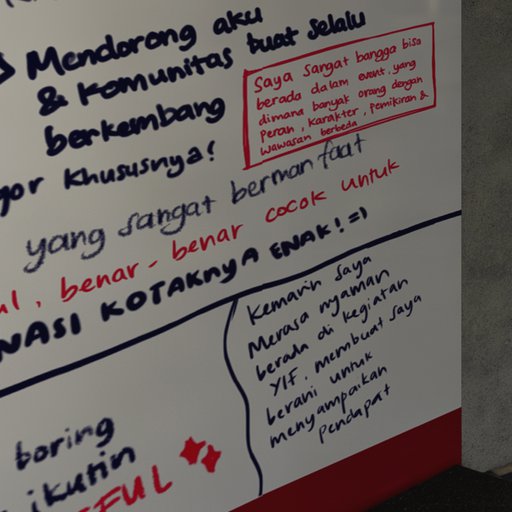 Mendorong aku
& komunitas buat selalu
berkembang
gor khususnya!
Saya sangat bangga bisa
berada dalam event, yang
dimana banyak orang dengan
peran, karakter, pemikiran &
wawasan berbeda
yang sangat bermanfaat
benar-benar cocok untuk
NASI KOTAKNYA ENAK! =)
Kemarin saya
Merasa nyaman
berada di kegiatan
YIF, membuat saya
berani untuk
menyampaikan
pendapat
boring
ikutin
FUL